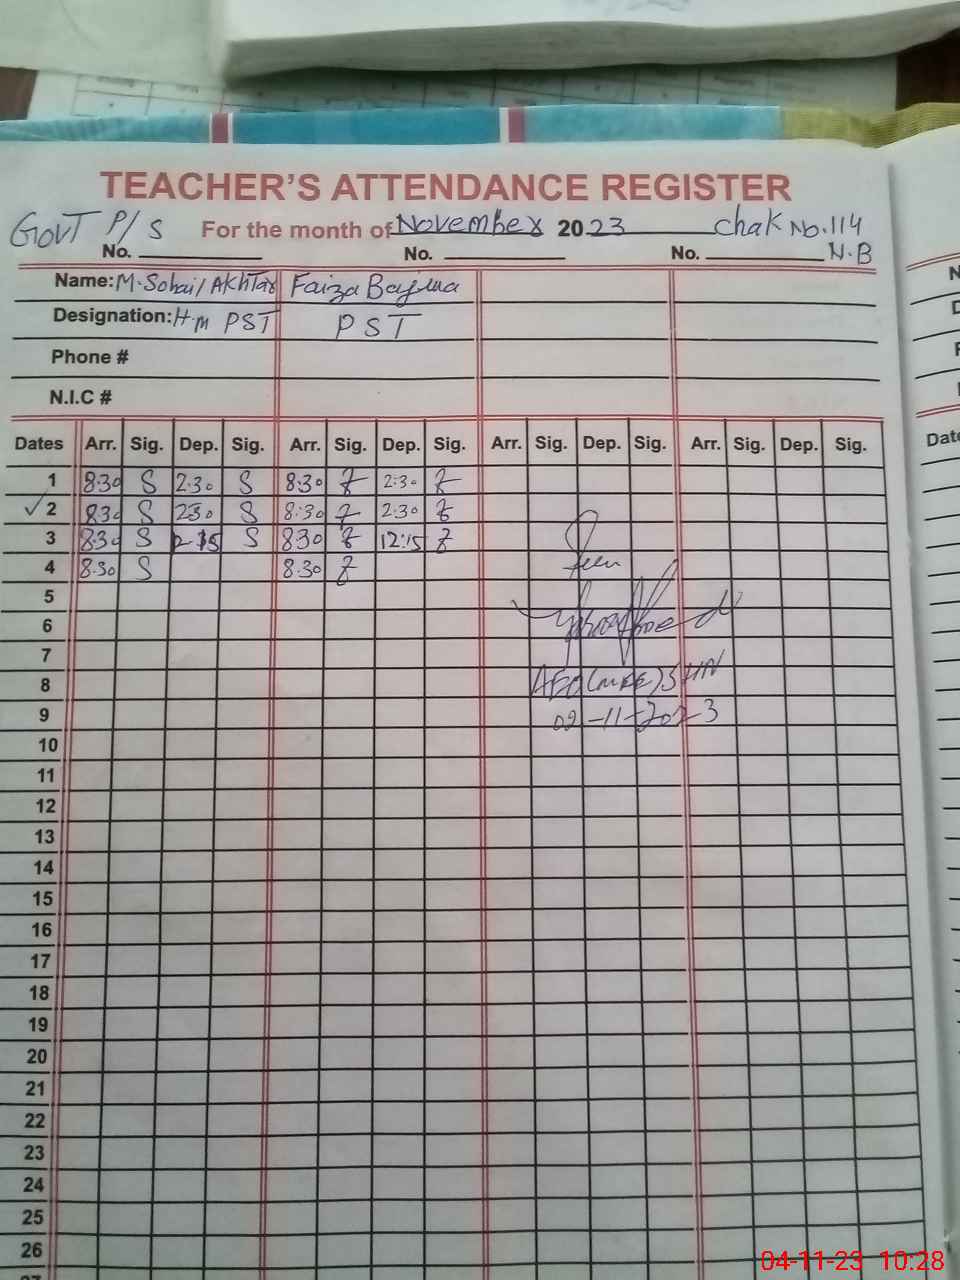 TEACHER'S ATTENDANCE REGISTER
GOVT P/S For the month of November 2023 Chak No.114
No. No. No. N.B
Name: M.Sohail Akhtar Faiza Bajwa
Designation: H.m PST PST
Phone #
N.I.C #
Dates Arr. Sig. Dep. Sig. Arr. Sig. Dep. Sig. Arr. Sig. Dep. Sig. Arr. Sig. Dep. Sig.
1 8:30 S 2:30 S 8:30 2:30
✓2 8:30 S 2:30 S 8:30 2:30
3 8:30 S S 8:30 12:15
4 8:30 S 8:30
Seen
5
6
7
8 AEO (MEE) SHN
9 02-11-2023
10
11
12
13
14
15
16
17
18
19
20
21
22
23
24
25
26
27
Date
04-11-23 10:28